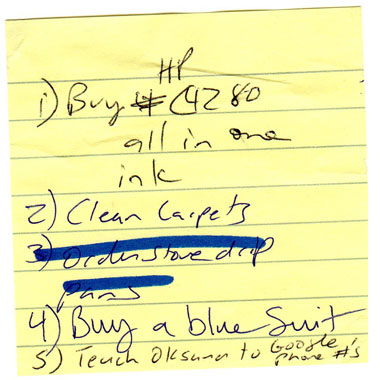 HP
1) Buy C4280
all in one
ink
2) Clean Carpets
3) Order stove drip
pans
4) Buy a blue Suit
5) Teach Oksana to Google
Phone #'s